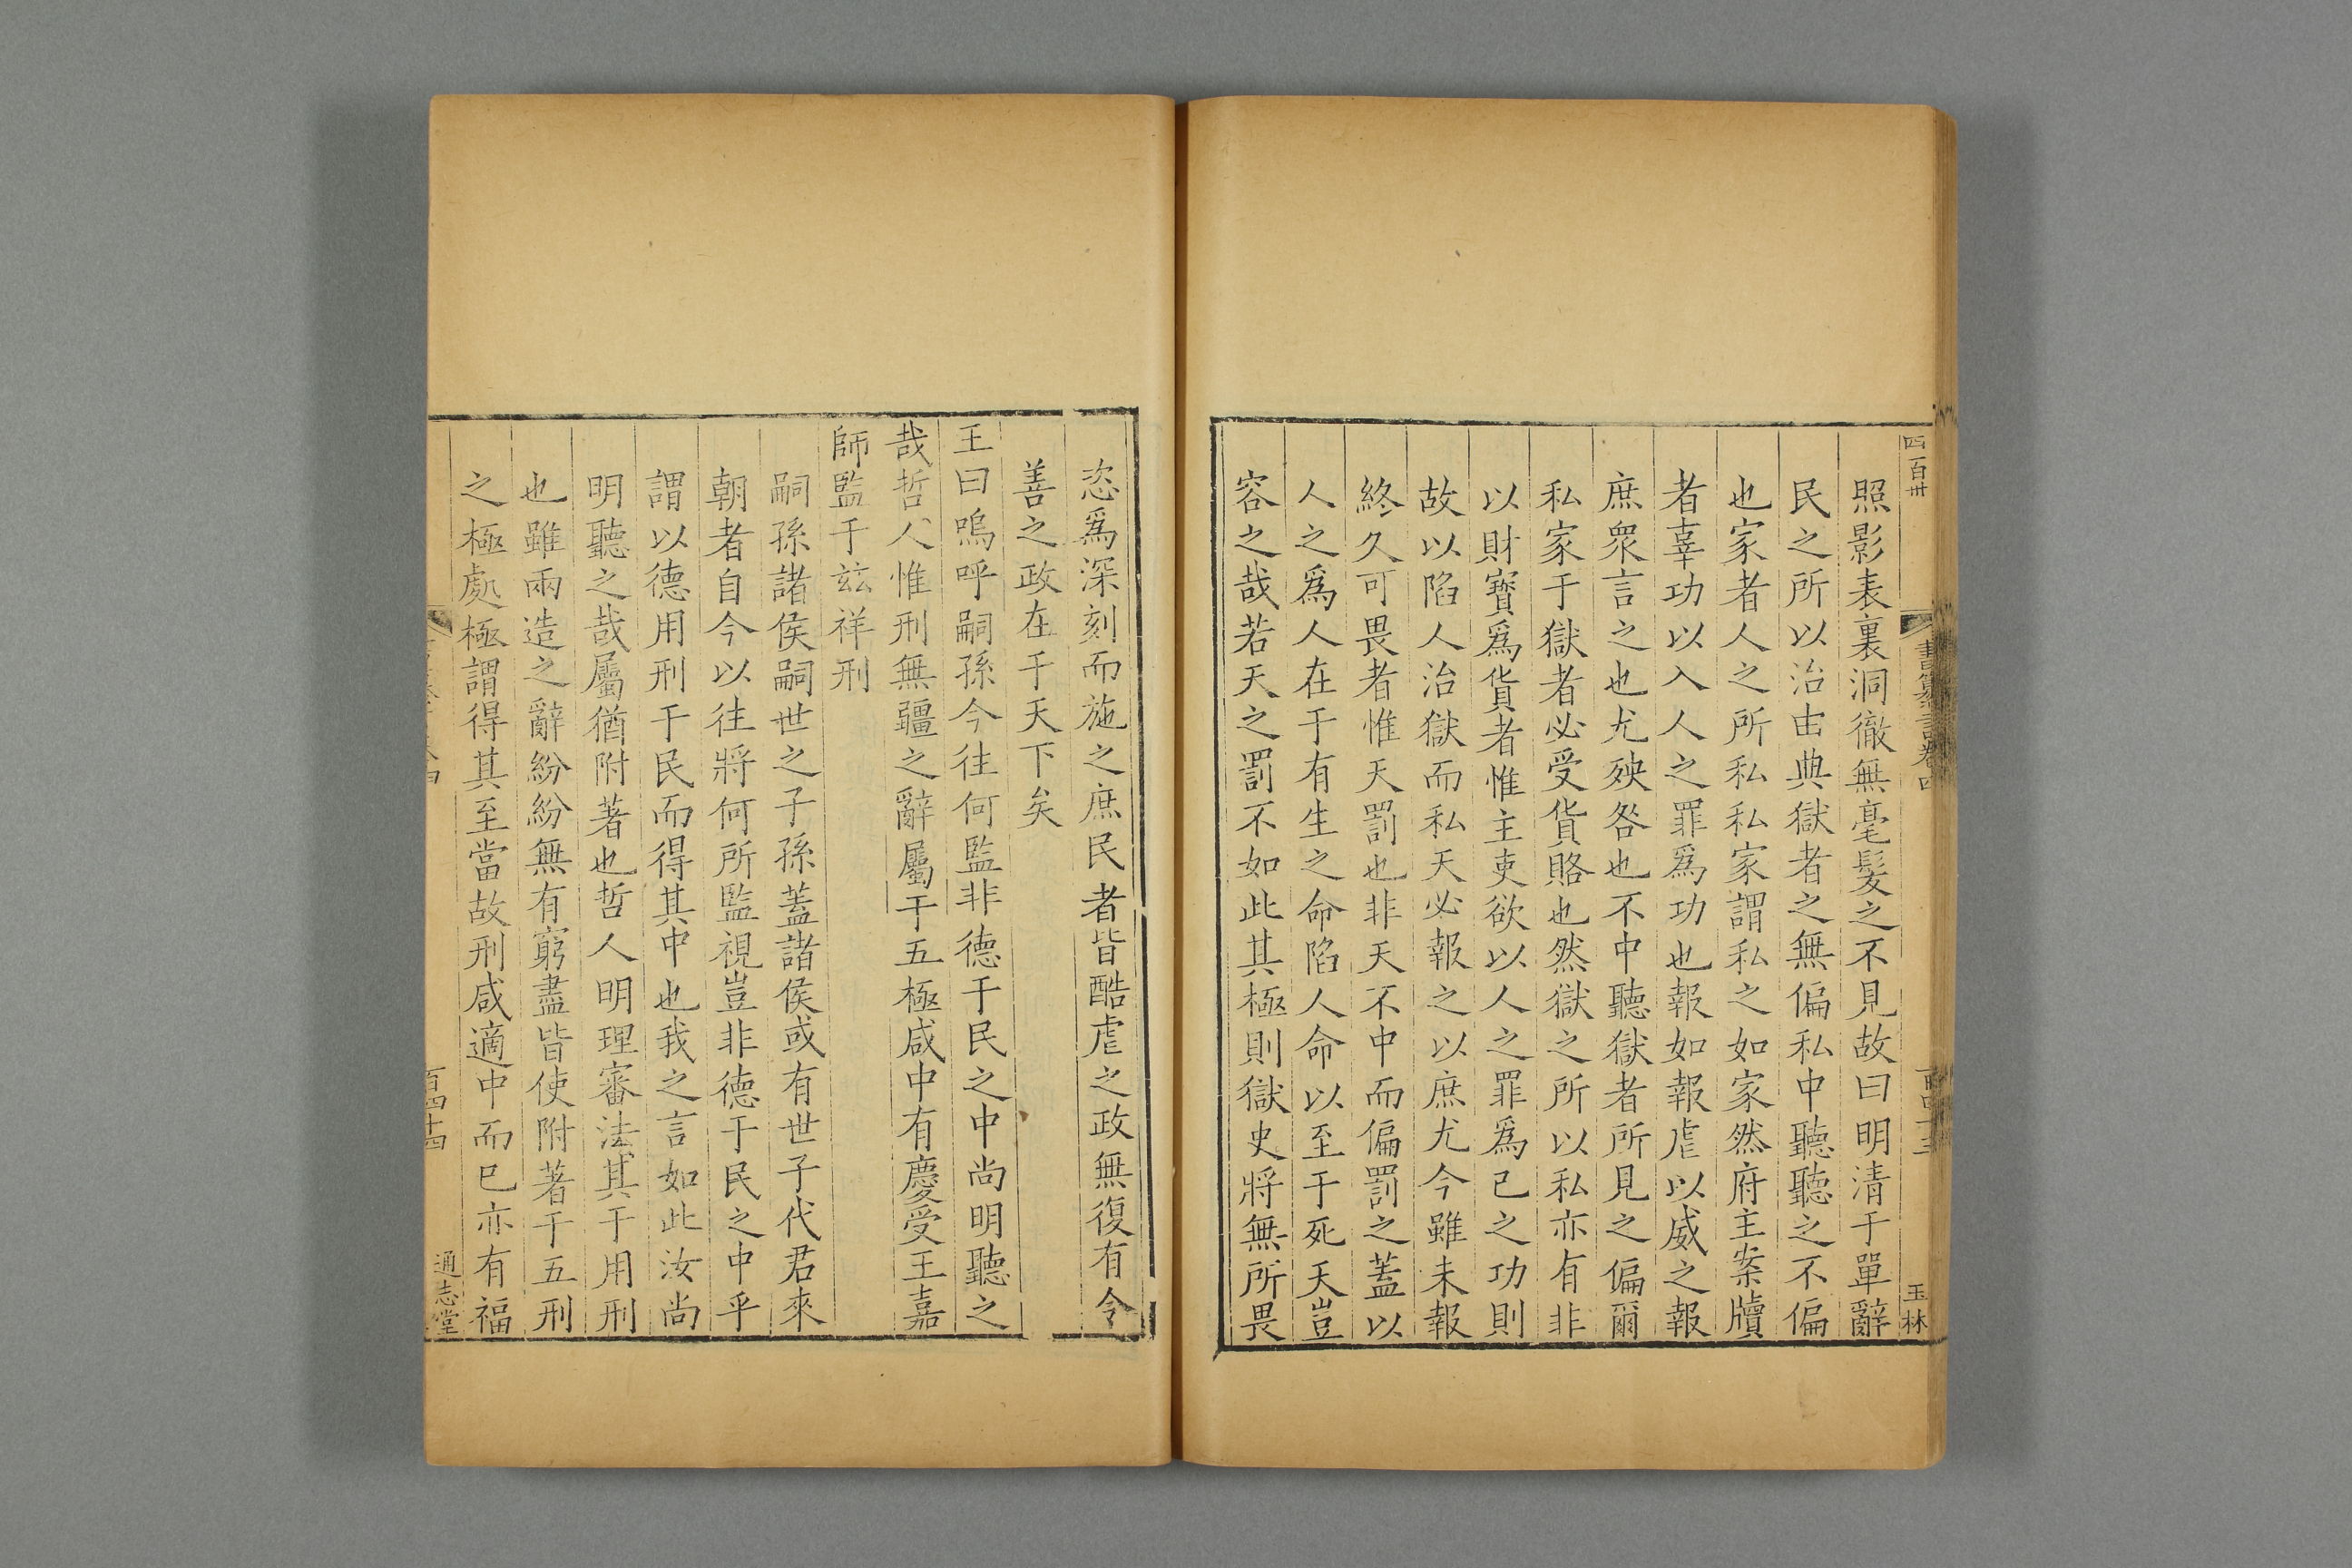 四百卅
書纂言卷四
玉林
照影表裏洞徹無毫髮之不見故曰明清于單辭
民之所以治由典獄者之無偏私中聽聽之不偏
也家者人之所私私家謂私之如家然府主案牘
者辜功以入人之罪爲功也報如報虐以威之報
庶衆言之也尤殃咎也不中聽獄者所見之偏爾
私家于獄者必受貨賂也然獄之所以私亦有非
以財寳爲貨者惟主吏欲以人之罪爲己之功則
故以陷人治獄而私天必報之以庶尤今雖未報
終久可畏者惟天罰也非天不中而偏罰之蓋以
人之爲人在于有生之命陷人命以至于死天豈
容之哉若天之罰不如此其極則獄史將無所畏
恣爲深刻而施之庶民者皆酷虐之政無復有令
善之政在于天下矣
王曰嗚呼嗣孫今往何監非德于民之中尚明聽之
哉哲人惟刑無疆之辭屬于五極咸中有慶受王嘉
師監于玆祥刑
嗣孫諸侯嗣世之子孫蓋諸侯或有世子代君來
朝者自今以往將何所監視豈非德于民之中乎
謂以德用刑于民而得其中也我之言如此汝尚
明聽之哉屬猶附著也哲人明理審法其于用刑
也雖兩造之辭紛紛無有窮盡皆使附著于五刑
之極處極謂得其至當故刑咸適中而已亦有福
百四十四
通志堂